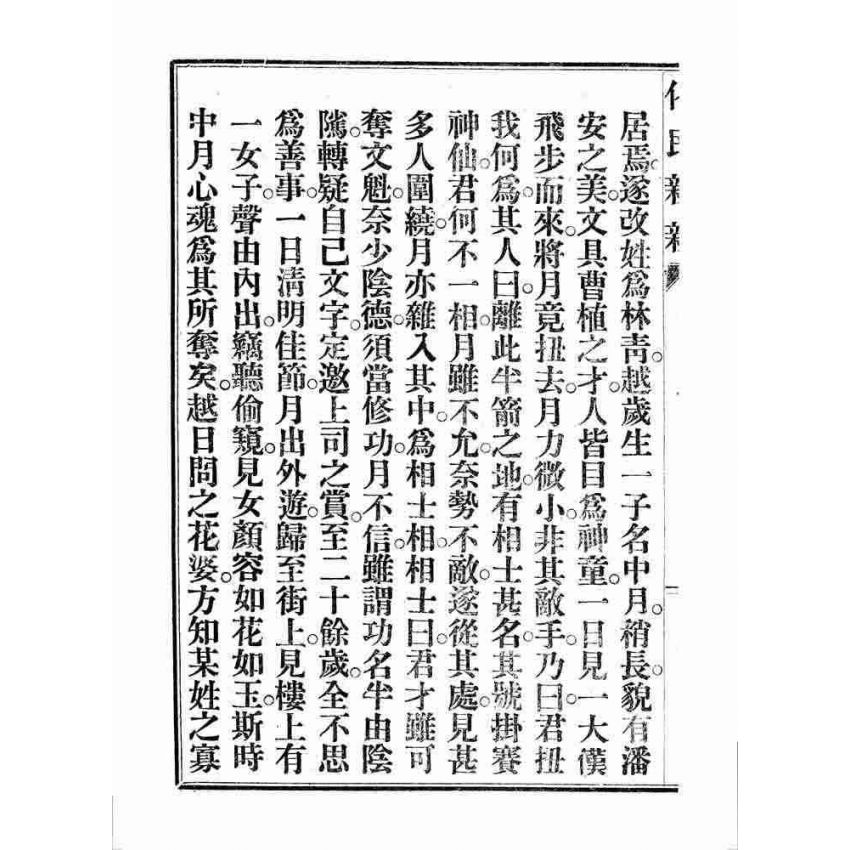 居焉。遂改姓爲林靑。越歲生一子名中月。稍長。貌有潘
安之美。文具曹植之才。人皆目爲神童。一日見一大漢
飛步而來。將月竟扭去。月力微小。非其敵手。乃曰。君扭
我何爲。其人曰。離此半箭之地。有相士甚名。其號掛賽
神仙。君何不一相。月雖不允。奈勢不敵。遂從其處。見甚
多人圍繞。月亦雜入其中。爲相士相。相士曰。君才雖可
奪文魁。奈少陰德。須當修功。月不信。雖謂功名半由陰
隲。轉疑自己文字。定邀上司之賞。至二十餘歲。全不思
爲善事。一日淸明佳節。月出外遊。歸至街上。見樓上有
一女子。聲由內出。竊聽偷窺。見女顏容如花如玉。斯時
中月心魂爲其所奪矣。越日問之花婆。方知某姓之寡